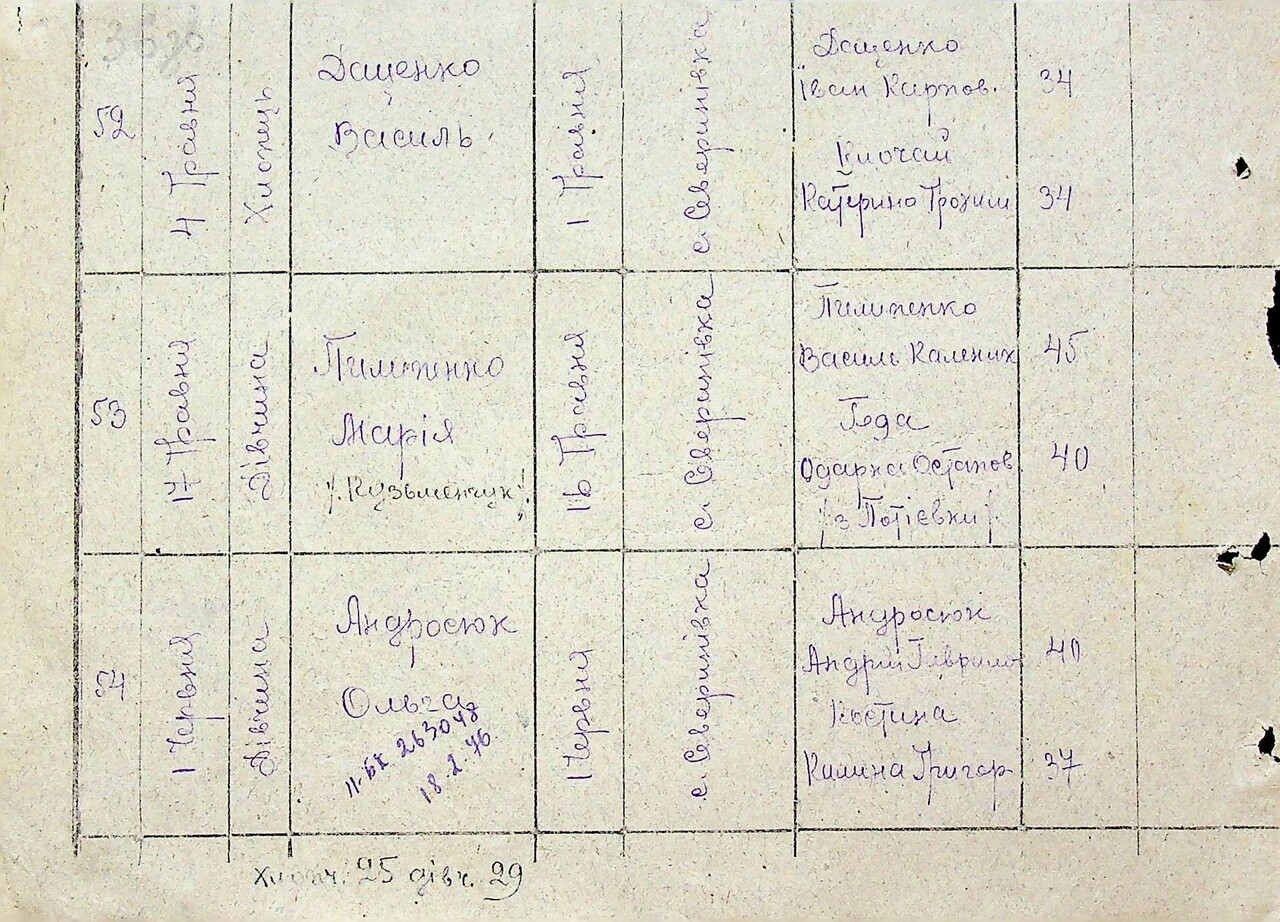 52
4 Травня
Хлопець
Даценко
Василь
1 Травня
с. Северинівка
Даценко
Іван Карпов.
Клочай
Катерино Трохим
34
34
53
17 Травня
Дівчина
Пилипенко
Марія
/. Кузьменчук /.
16 Травня
с. Северинівка
Пилипенко
Василь Калених
Года
Одарка Остапов.
/ з Потієвки /.
45
40
54
1 Червня
Дівчина
Андросюк
Ольга
263048
18.2.76
1 Червня
с. Северинівка
Андросюк
Андрій Гаврилов
Костина
Килина Григор
40
37
Хлопч. 25 дівч. 29